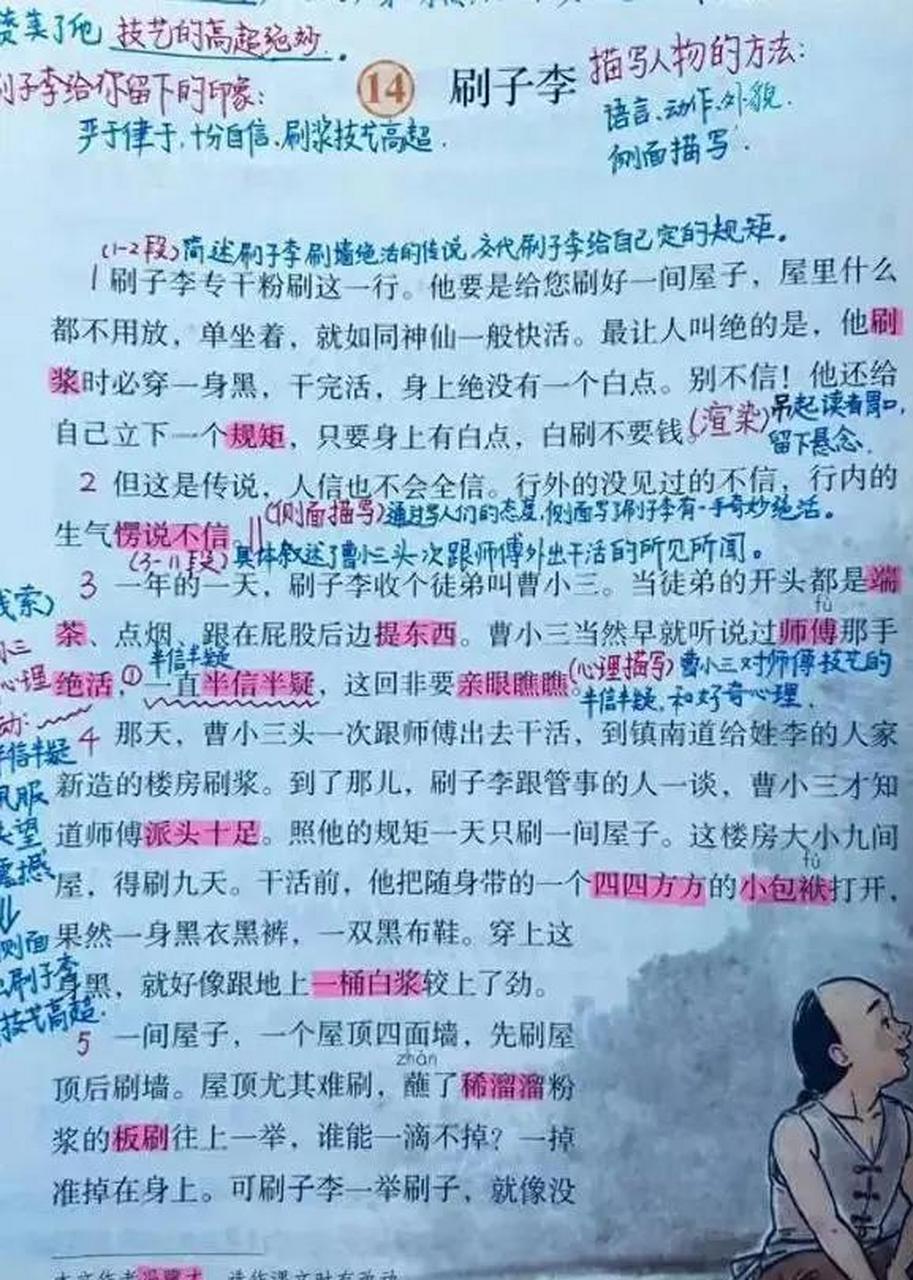 赞美了他 技艺的高超绝妙.
刷子李给你留下的印象:
严于律于,十分自信、刷浆技艺高超.
14 刷子李
描写人物的方法:
语言、动作、外貌.
侧面描写.
(1-2段)简述刷子李刷墙绝活的传说,交代刷子李给自己定的规矩。
1 刷子李专干粉刷这一行。他要是给您刷好一间屋子,屋里什么
都不用放,单坐着,就如同神仙一般快活。最让人叫绝的是,他刷
浆时必穿一身黑,干完活,身上绝没有一个白点。别不信!他还给
自己立下一个规矩,只要身上有白点,白刷不要钱。
(渲染)吊起读者胃口,
留下悬念.
2 但这是传说,人信也不会全信。行外的没见过的不信,行内的
生气愣说不信。
(侧面描写)通过写人们的态度,侧面写了刷子李有一手奇妙绝活。
(3-11段)具体叙述了曹小三头一次跟师傅外出干活的所见所闻。
3 一年的一天,刷子李收个徒弟叫曹小三。当徒弟的开头都是端
fù
茶、点烟、跟在屁股后边提东西。曹小三当然早就听说过师傅那手
半信半疑
绝活,①一直半信半疑,这回非要亲眼瞧瞧。
(心理描写)曹小三对师傅技艺的
半信半疑,和好奇心理.
线索)
小三
心理
动:
半信半疑
佩服
失望
震撼
侧面
刷子李
技艺高超.
4 那天,曹小三头一次跟师傅出去干活,到镇南道给姓李的人家
新造的楼房刷浆。到了那儿,刷子李跟管事的人一谈,曹小三才知
道师傅派头十足。照他的规矩一天只刷一间屋子。这楼房大小九间
fú
屋,得刷九天。干活前,他把随身带的一个四四方方的小包袱打开,
果然一身黑衣黑裤,一双黑布鞋。穿上这
身黑,就好像跟地上一桶白浆较上了劲。
5 一间屋子,一个屋顶四面墙,先刷屋
zhàn
顶后刷墙。屋顶尤其难刷,蘸了稀溜溜粉
浆的板刷往上一举,谁能一滴不掉?一掉
准掉在身上。可刷子李一举刷子,就像没
本文作者冯骥才,选作课文时有改动